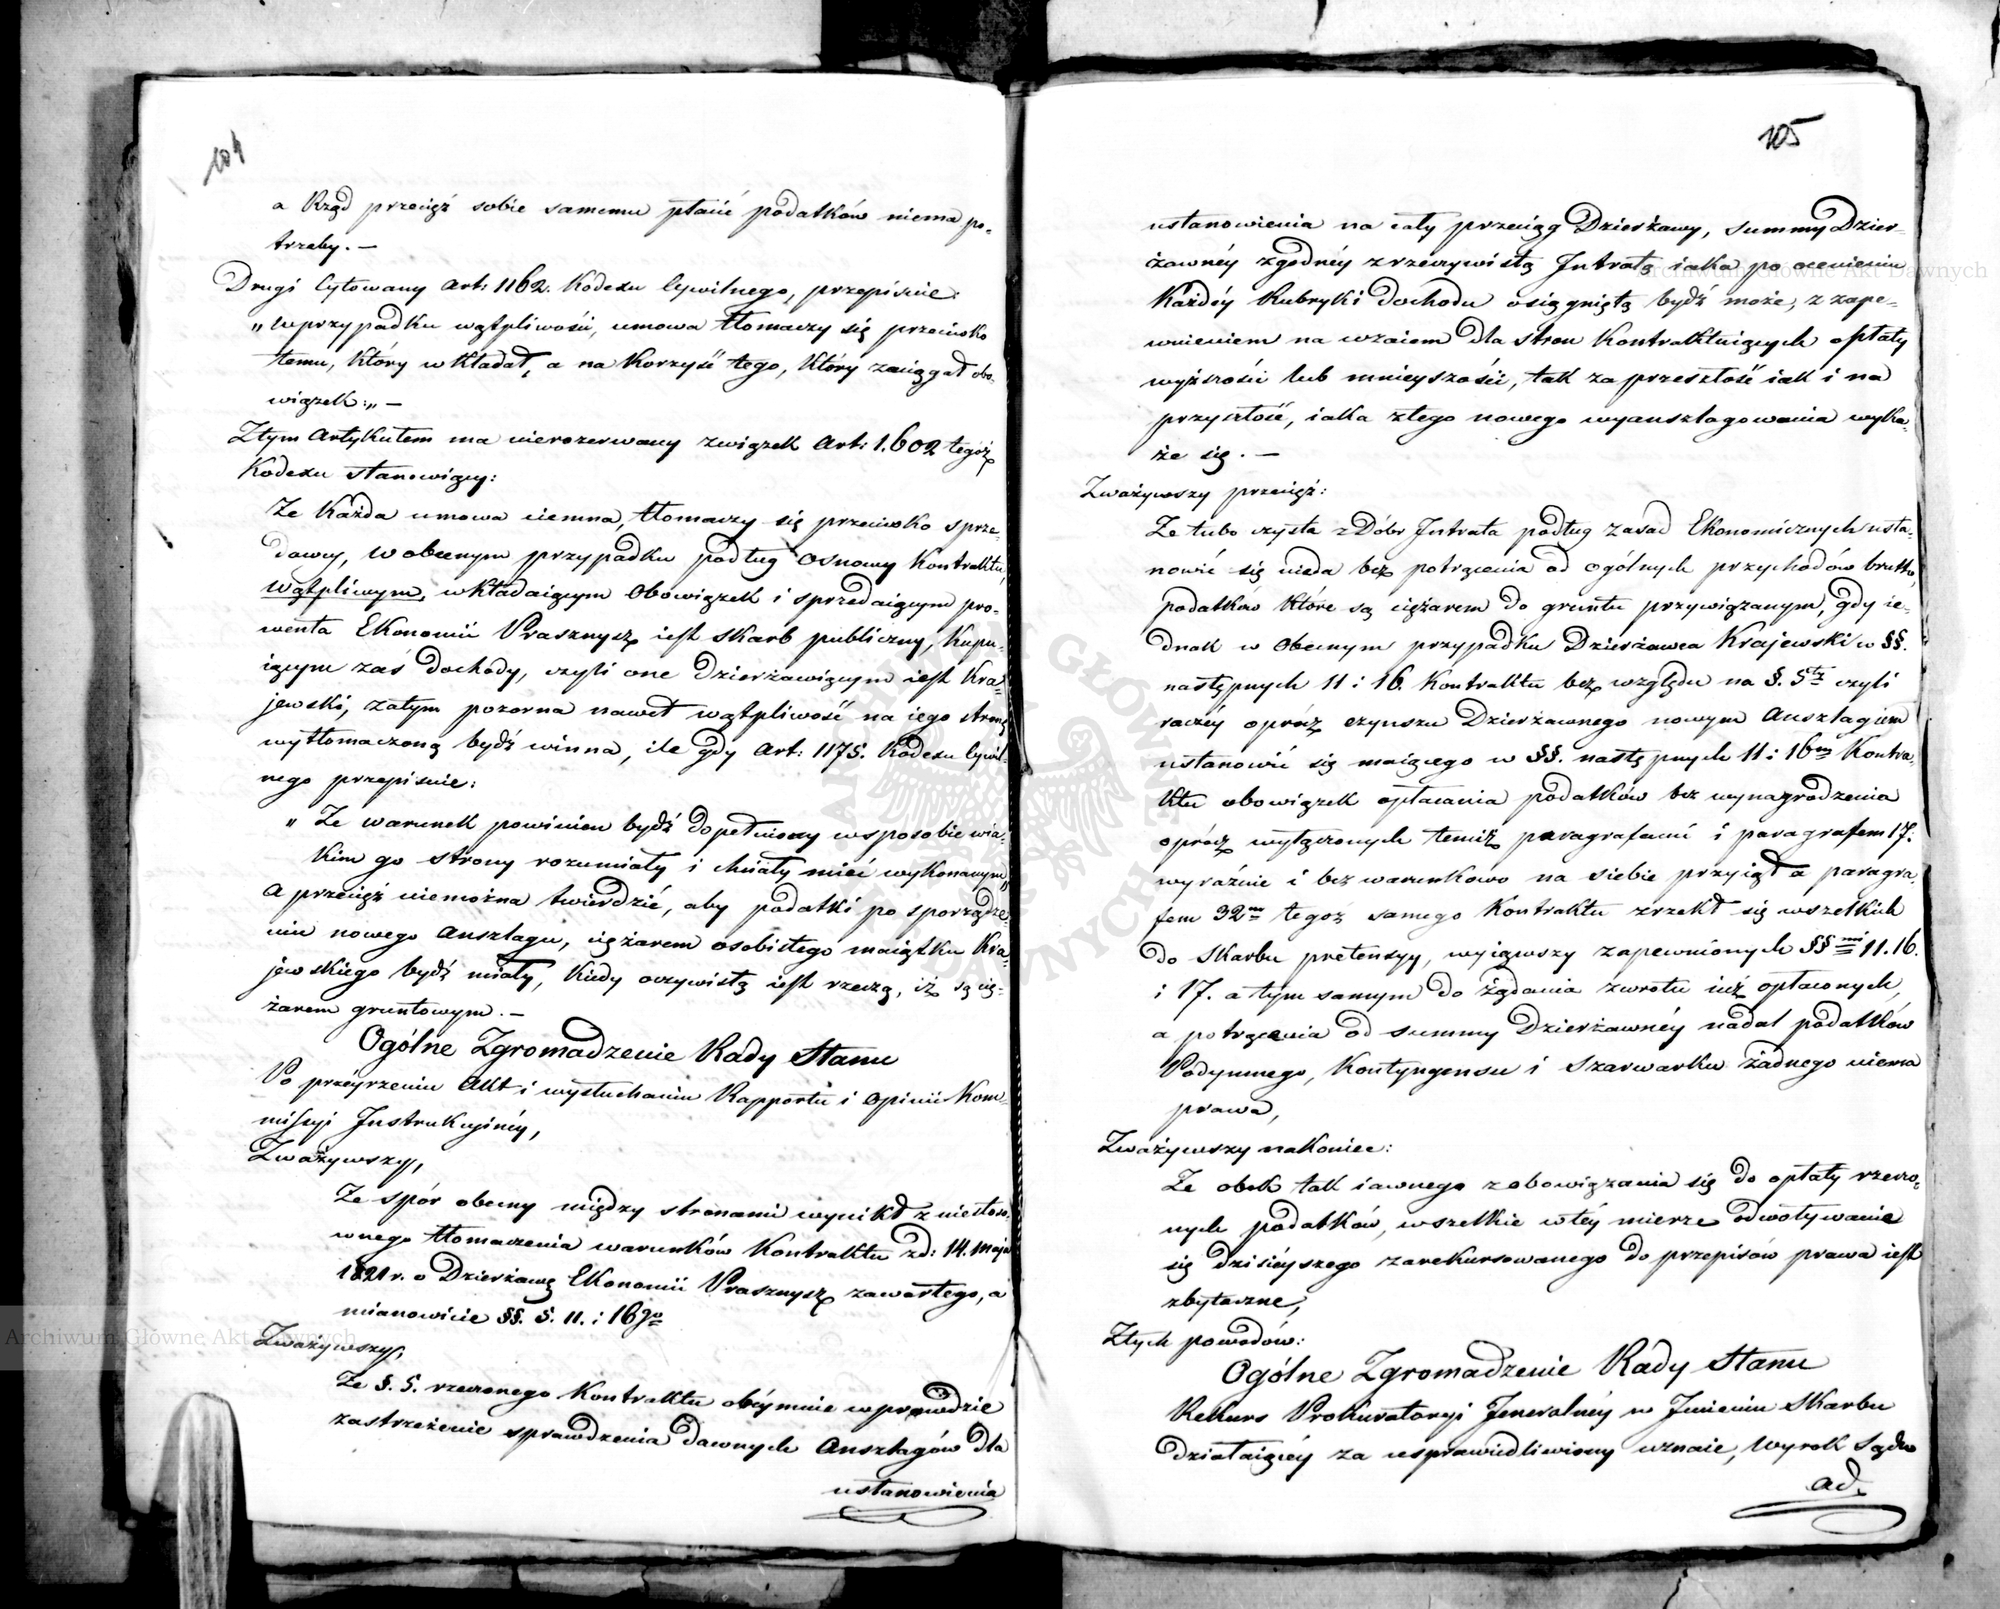 104
a Rząd przecięż sobie samemu płacić podatków niema po-
trzeby. —
Drugi Cytowany Art: 1162. Kodexu Cywilnego, przepisuie:
„Wprzypadku wątpliwości, umowa tłomaczy się przeciwko
temu, który wkładał, a na korzyść tego, który zaciągał obo-
wiązek:„ —
Ztym Artykułem ma nierozerwany związek Art: 1.602 tegoż
Kodexu stanowiący:
Że każda umowa ciemna, tłomaczy się przeciwko sprze-
dawcy, w obecnym przypadku podług osnowy kontraktu,
wątpliwym, wkładaiącym obowiązek i sprzedaiącym pro-
wenta Ekonomii Prasznysz iest skarb publiczny, kupu-
iącym zaś dochody, czyli one dzierżawiącym iest Kra-
jewski, zatym pozorna nawet wątpliwość na iego stronę
wytłomaczoną bydź winna, ile gdy Art: 1175. Kodexu Cywil-
nego przepisuie:
„Że warunek powinien bydź dopełniony wsposobie wia-
kim go strony rozumiały i chciały mieć wykonanym„
A przecięż niemożna twierdzić, aby podatki po sporządze-
niu nowego Anszlagu, ciężarem osobistego maiątku Kra-
jewskiego bydź miały, kiedy oczywistą iest rzeczą, iż są cię-
żarem gruntowym. —
Ogólne Zgromadzenie Rady Stanu
Po przeyrzeniu Akt i wysłuchaniu Rapportu i Opinii Kom-
missyi Instrukcyinéy,
Zważywszy,
Że spór obecny między stronami wynikł z niestoso-
wnego tłomaczenia warunków kontraktu zd: 14. Maja
1821 r. o Dzierżawę Ekonomii Prasznysz zawartego, a
mianowicie §§. 5. 11. i 16go
Zważywszy,
Że §. 5. rzeczonego kontraktu obéymuie wprawdzie
zastrzeżenie sprawdzenia dawnych Anszlagów dla
ustanowienia
105
ustanowienia na cały przeciąg Dzierżawy, summy Dzier-
żawnéy zgodnéy z rzeczywistą Intratą iaka po ocenieniu
każdéy Rubryki dochodu osiągniętą bydź może, z zape-
wnieniem na wzaiem dla stron kontraktuiących opłaty
wyższości lub mnieyszości, tak za przeszłość iak i na
przyszłość, iaka ztego nowego wyanszlagowania wyka-
że się. —
Zważywszy przecięż:
Że lubo czysta z Dóbr Intrata podług zasad Ekonomicznych usta-
nowić się nieda bez potrącenia od ogólnych przychodów brutto,
podatków które są ciężarem do gruntu przywiązanym, gdy ie-
dnak w obecnym przypadku Dzierżawca Krajewski w §§.
następnych 11 i 16. kontraktu bez względu na §. 5ty czyli
raczéy oprócz czynszu Dzierżawnego nowym Anszlagiem
ustanowić się maiącego w §§. następnych 11 i 16m Kontra-
ktu obowiązek opłacania podatków bez wynagrodzenia
oprócz wyłączonych temiż paragrafami i paragrafem 17.
wyraźnie i bez warunkowo na siebie przyiął a paragra-
fem 32m tegoż samego Kontraktu zrzekł się wszelkich
do Skarbu pretensyy, wyiąwszy zapewnionych §§mi 11. 16.
i 17. a tym samym do żądania zwrotu iuż opłaconych,
a potrącenia od summy Dzierżawnéy nadal podatków
Podymnego, Kontyngensu i Szarwarku żadnego niema
prawa,
Zważywszy nakoniec:
Że obok tak iawnego zobowiązania się do opłaty rzeczo-
nych podatków, wszelkie wtéy mierze odwoływanie
się dzisiéyszego zarekursowanego do przepisów prawa iest
zbyteczne,
Ztych powodów:
Ogólne Zgromadzenie Rady Stanu
Rekurs Prokuratoryi Jeneralnéy w Imieniu Skarbu
działaiącéy za usprawiedliwiony uznaie, Wyrok Sądu
ad.
Archiwum Główne Akt Dawnych
Archiwum Główne Akt Dawnych